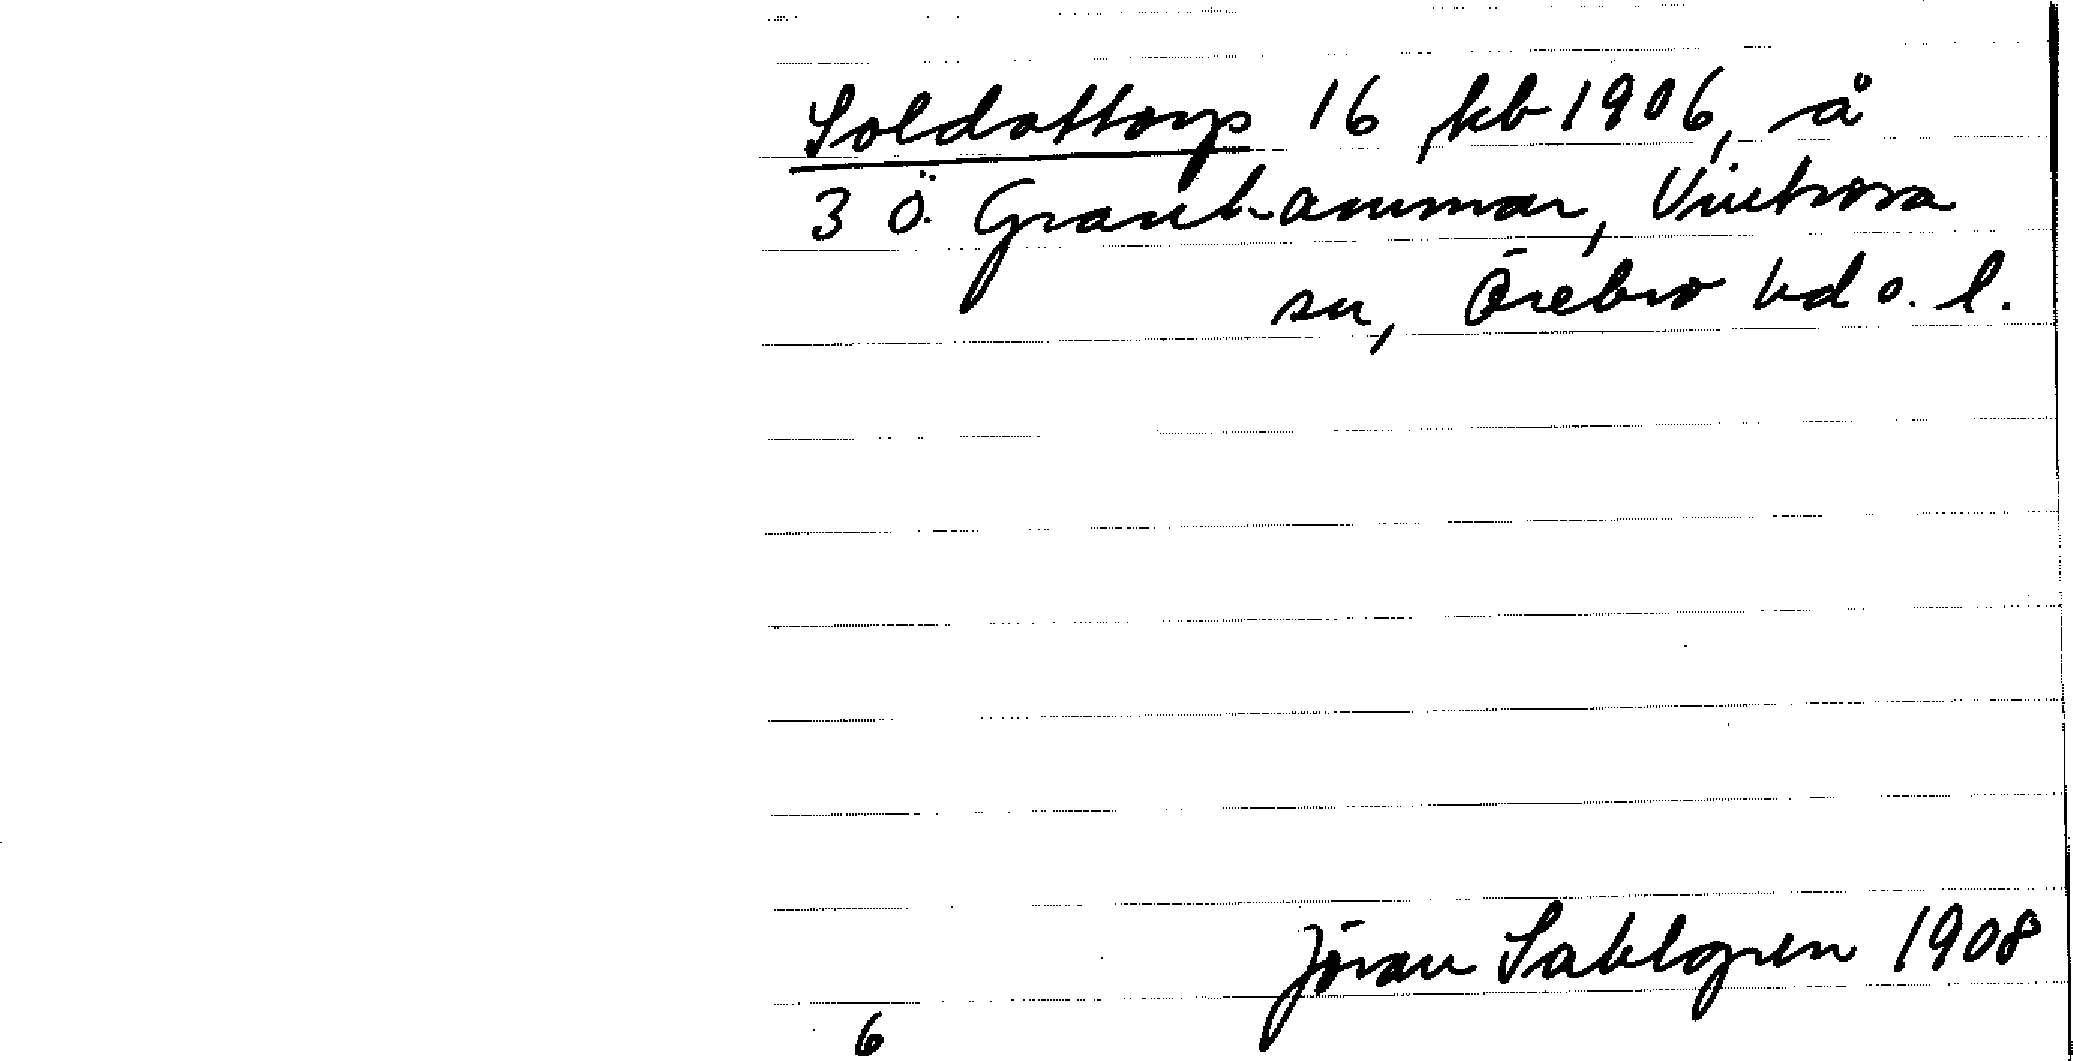 Soldattorp 16, kb 1906, å
3 Ö. Granhammar, Vintrosa
sn, Örebro hd o. l.
Jöran Sahlgren 1908
6